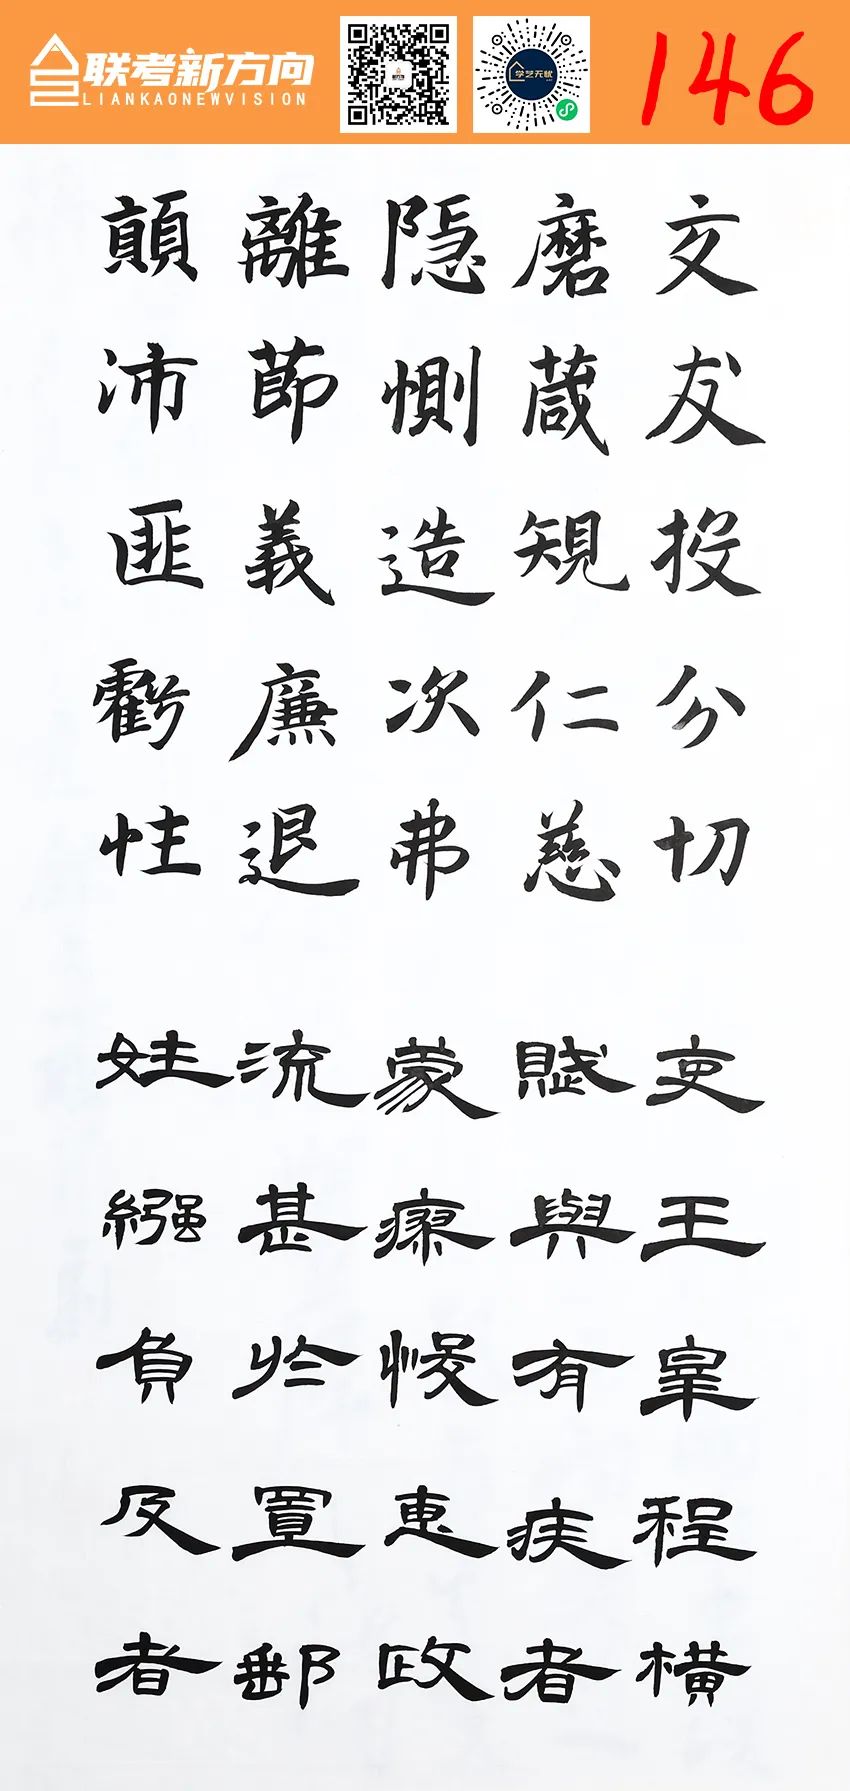 联考新方向
LIANKAONEWVISION
学艺无忧
146
交友投分切
磨箴規仁慈
隐惻造次弗
離莭義廉退
顛沛匪虧性
吏王宰程横
賦與有疾者
蒙瘳悛惠政
流甚於置郵
姓繈負反者